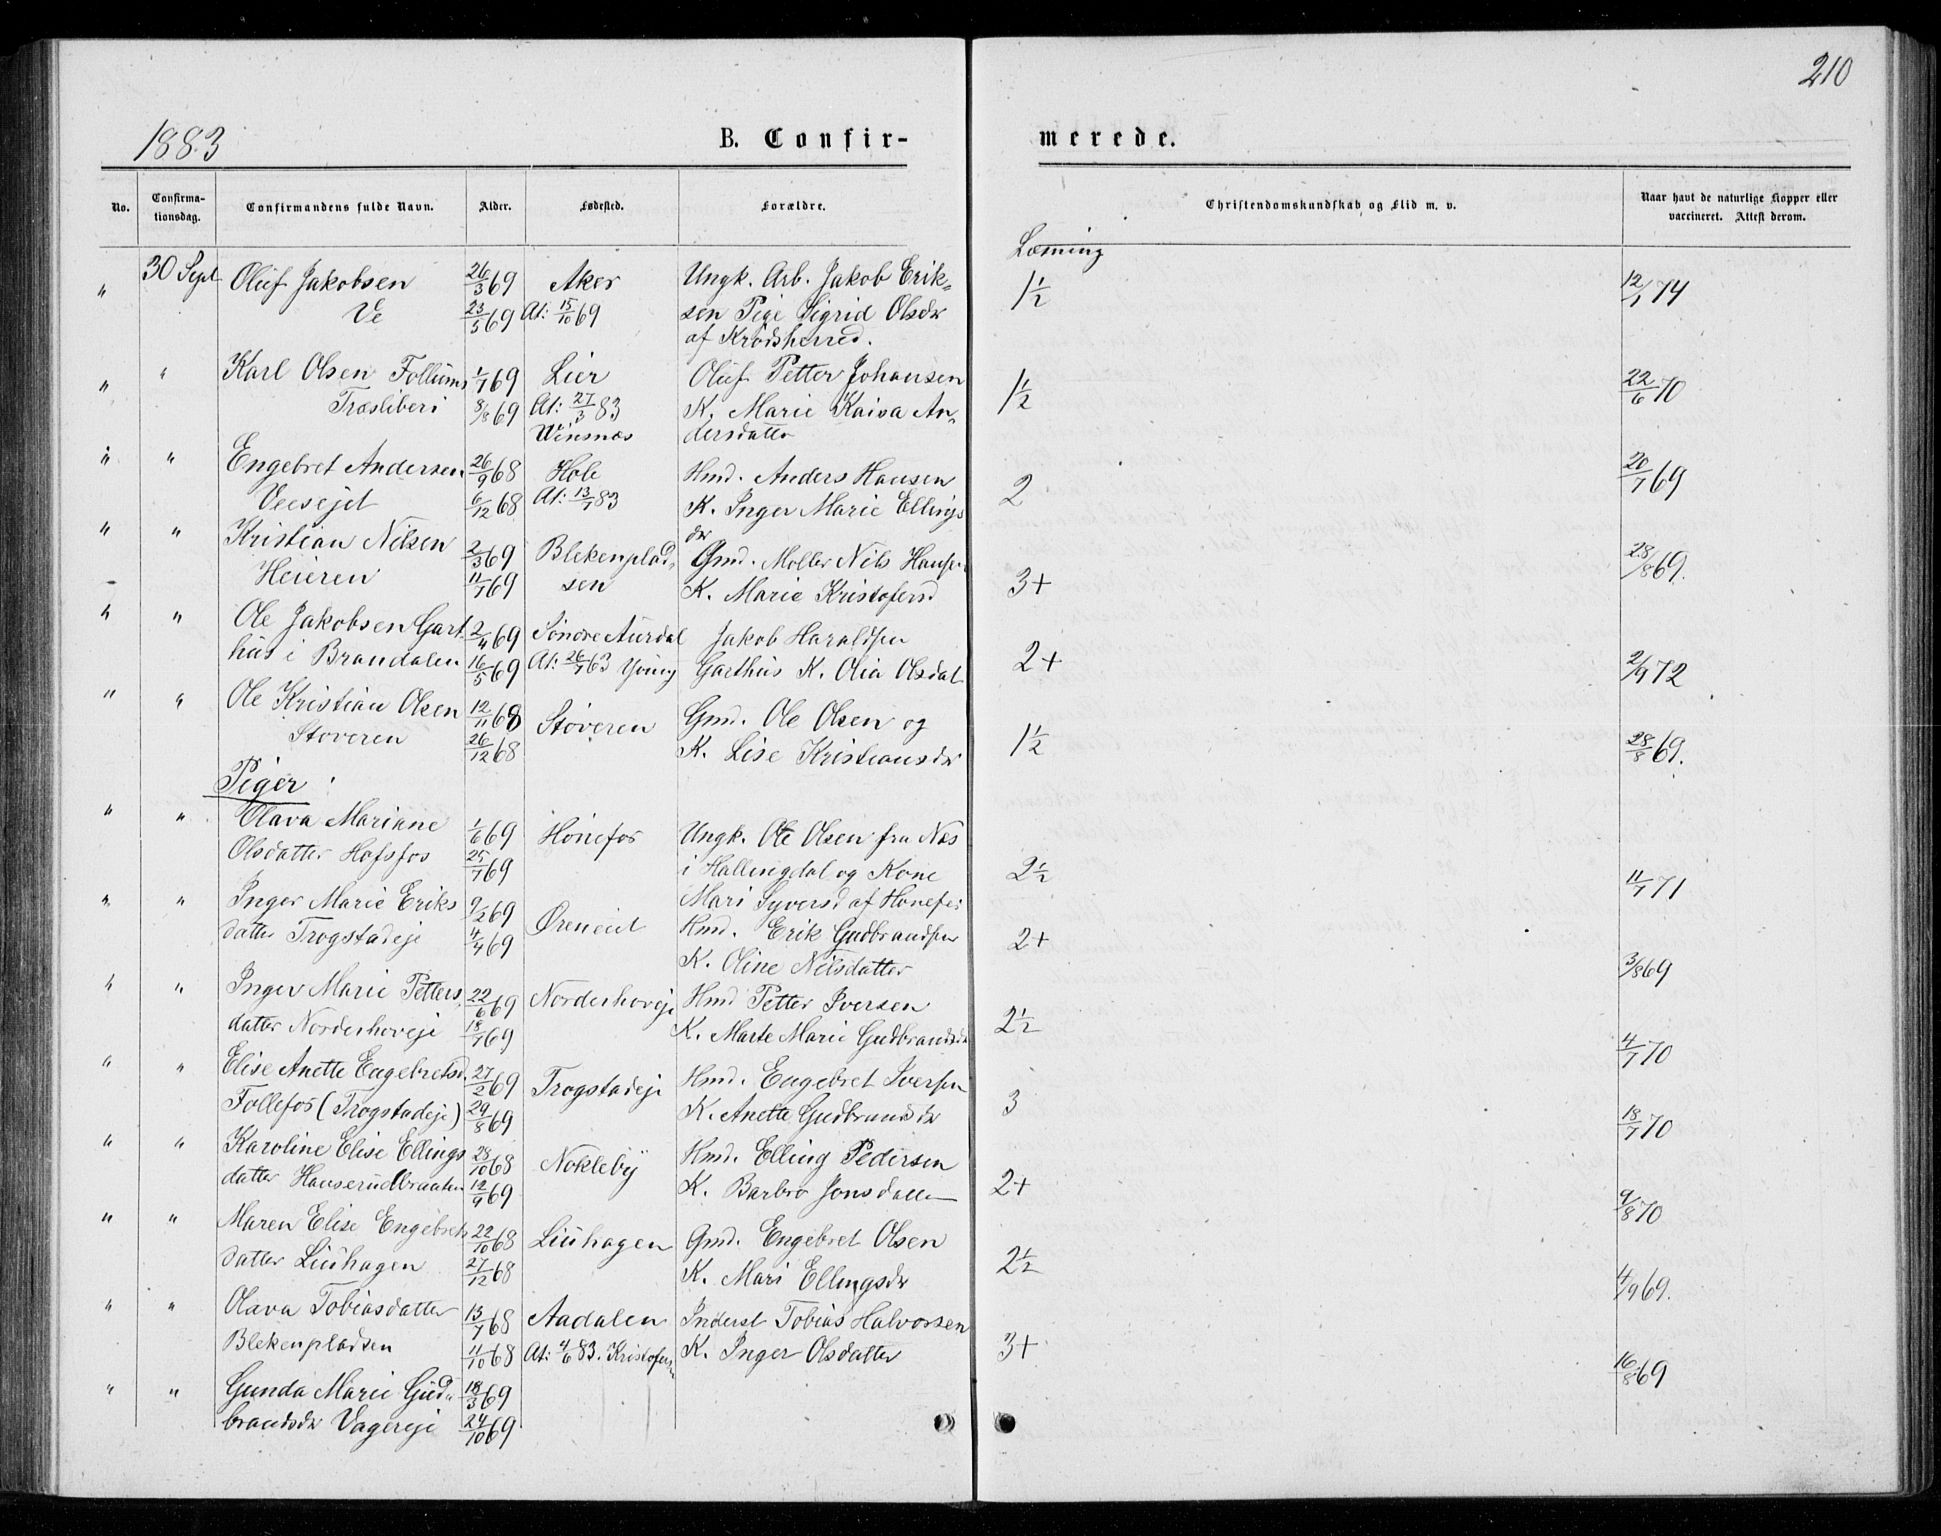 210
1883
B. Confir-
merede.
No.
Confirma-
tionsdag.
Confirmandens fulde Navn.
Alder.
Fødested.
Forældre.
Christendomskundskab og Flid m. v.
Naar havt de naturlige Kopper eller
vaccineret. Attest derom.
Læsning
" 30 Sept Oluf Jakobsen 26/3 69 Aker Ungk. Arb. Jakob Erik- 1½ 12/1 74
Ve 23/5 69 At: 15/10 69 sen Pige Sigrid Olsdr
af Krødsherred.
" " Karl Olsen Follums 1/7 69 Lier Oluf Petter Johansen 1½ 22/6 70
Træsliberi 8/8 69 At: 27/3 83 K. Marie Kaisa An-
Winsnæs dersdatter
" " Engebret Andersen 26/9 68 Hole Hmd. Anders Hansen 2 20/7 69
Veesejet 6/12 68 At: 13/7 83 K. Inger Marie Ellings
dr
" " Kristian Nilsen 2/3 69 Blekenplad- Gmd. Møller Nils Hansen 3+ 28/8 69.
Heieren 11/7 69 sen K. Marie Kristofersd
" " Ole Jakobsen Gart- 2/4 69 Søndre Aurdal Jakob Haraldsen 2+ 2/9 72
hus i Brandalen 16/5 69 At: 26/7 63 Garthus K. Olia Olsdat
" " Ole Kristian Olsen 12/11 68 Støveren Gmd. Ole Olsen og 1½ 28/8 69.
Støveren 26/12 68 K. Lise Kristiansdr
Piger:
" " Olava Mariane 1/6 69 Hønefos Ungk. Ole Olsen fra Næs 2½ 11/7 71
Olsdatter Hofsfos 25/7 69 i Hallingdal og Kone
Mari Syversd af Hønefos
" " Inger Marie Eriks 9/2 69 Øreneiet Hmd. Erik Gudbrandsen 2+ 3/8 69
datter Trogstadeje 4/4 69 K. Oline Nilsdatter
" " Inger Marie Petters 22/6 69 Norderhoveje Hmd Petter Iversen 2½ 4/7 70
datter Norderhoveje 18/7 69 K. Marte Marie Gudbrandsdr
" " Elise Anette Engebretsd. 27/2 69 Trogstadeje Hmd. Engebret Iversen 3 18/7 70
Follefos (Trogstadeje) 29/8 69 K. Anette Gudbrandsdr
" " Karoline Elise Ellings 28/10 68 Nokleby Hmd. Elling Pedersen 2+ 9/8 70
datter Hanserudbraaten 12/9 69 K. Barbro Jonsdatter
" " Maren Elise Engebrets 22/10 68 Liuhagen Gmd. Engebret Olsen 2½ 4/9 69.
datter Liuhagen 27/12 68 K. Mari Ellingsdr
" " Olava Tobiasdatter 13/7 68 Aadalen Inderst Tobias Halvorsen 3+ 16/8 69
Blekenpladsen 11/10 68 At: 4/6 83. Kristofersen K. Inger Olsdatter
" " Gunda Marie Gud- 18/3 69
brandsdr Vagereje 24/10 69